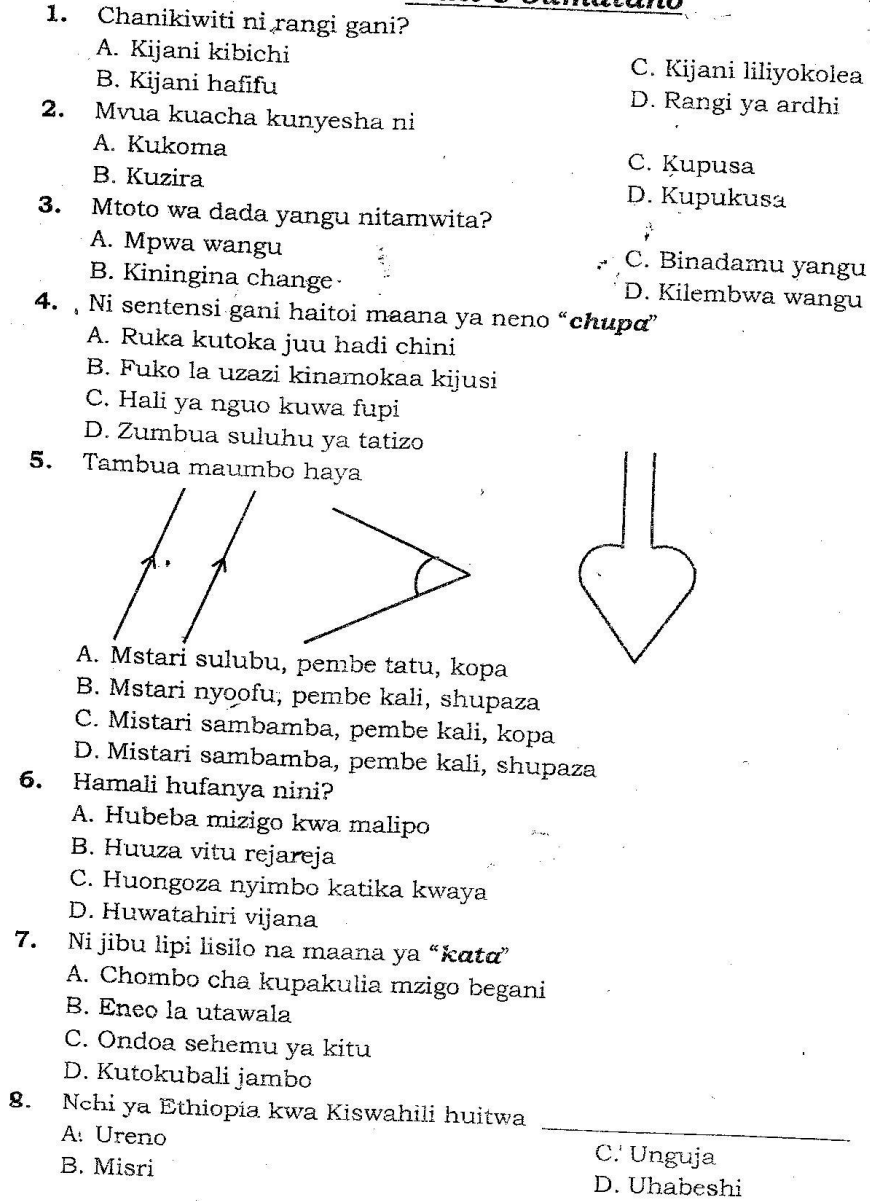 1. Chanikiwiti ni rangi gani?
A. Kijani kibichi
B. Kijani hafifu
C. Kijani liliyokolea
D. Rangi ya ardhi
2. Mvua kuacha kunyesha ni
A. Kukoma
B. Kuzira
C. Kupusa
D. Kupukusa
3. Mtoto wa dada yangu nitamwita?
A. Mpwa wangu
B. Kiningina change
C. Binadamu yangu
D. Kilembwa wangu
4. Ni sentensi gani haitoi maana ya neno “chupa”
A. Ruka kutoka juu hadi chini
B. Fuko la uzazi kinamokaa kijusi
C. Hali ya nguo kuwa fupi
D. Zumbua suluhu ya tatizo
5. Tambua maumbo haya
A. Mstari sulubu, pembe tatu, kopa
B. Mstari nyoofu, pembe kali, shupaza
C. Mistari sambamba, pembe kali, kopa
D. Mistari sambamba, pembe kali, shupaza
6. Hamali hufanya nini?
A. Hubeba mizigo kwa malipo
B. Huuza vitu rejareja
C. Huongoza nyimbo katika kwaya
D. Huwatahiri vijana
7. Ni jibu lipi lisilo na maana ya “kata”
A. Chombo cha kupakulia mzigo begani
B. Eneo la utawala
C. Ondoa sehemu ya kitu
D. Kutokubali jambo
8. Nchi ya Ethiopia kwa Kiswahili huitwa ____________
A. Ureno
B. Misri
C. Unguja
D. Uhabeshi